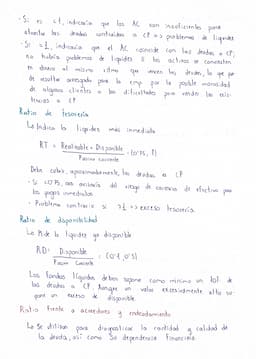 - Si es <1, indicaría que los AC son insuficientes para
atender las deudas contraídas a CP => problemas de liquidez
- Si =1, indicaría que el AC coincide con las deudas a CP;
no habría problemas de liquidez si los activos se convierten
en dinero al mismo ritmo que vencen las deudas, lo que puede
resultar arriesgado para la emp por la posible morosidad
de algunos clientes o las dificultades para vender las exis-
tencias a CP
Ratio de tesorería
Indica la liquidez más inmediata
RT = Realizable + Disponible / Pasivo Corriente = (0'75, 1)
Debe cubrir, aproximadamente, las deudas a CP
- Si <0'75, nos avisaría del riesgo de carencia de efectivo para
los pagos inmediatos
- Problema contrario si >1 => exceso tesorería.
Ratio de disponibilidad
Mide la liquidez ya disponible
RD = Disponible / Pasivo Corriente = (0'1, 0'3)
Los fondos líquidos deben suponer como mínimo un 10% de
las deudas a CP. Aunque un valor excesivamente alto su-
pone un exceso de disponible.
Ratio frente a acreedores y endeudamiento
Se utilizan para diagnosticar la cantidad y calidad de
la deuda, así como su dependencia financiera